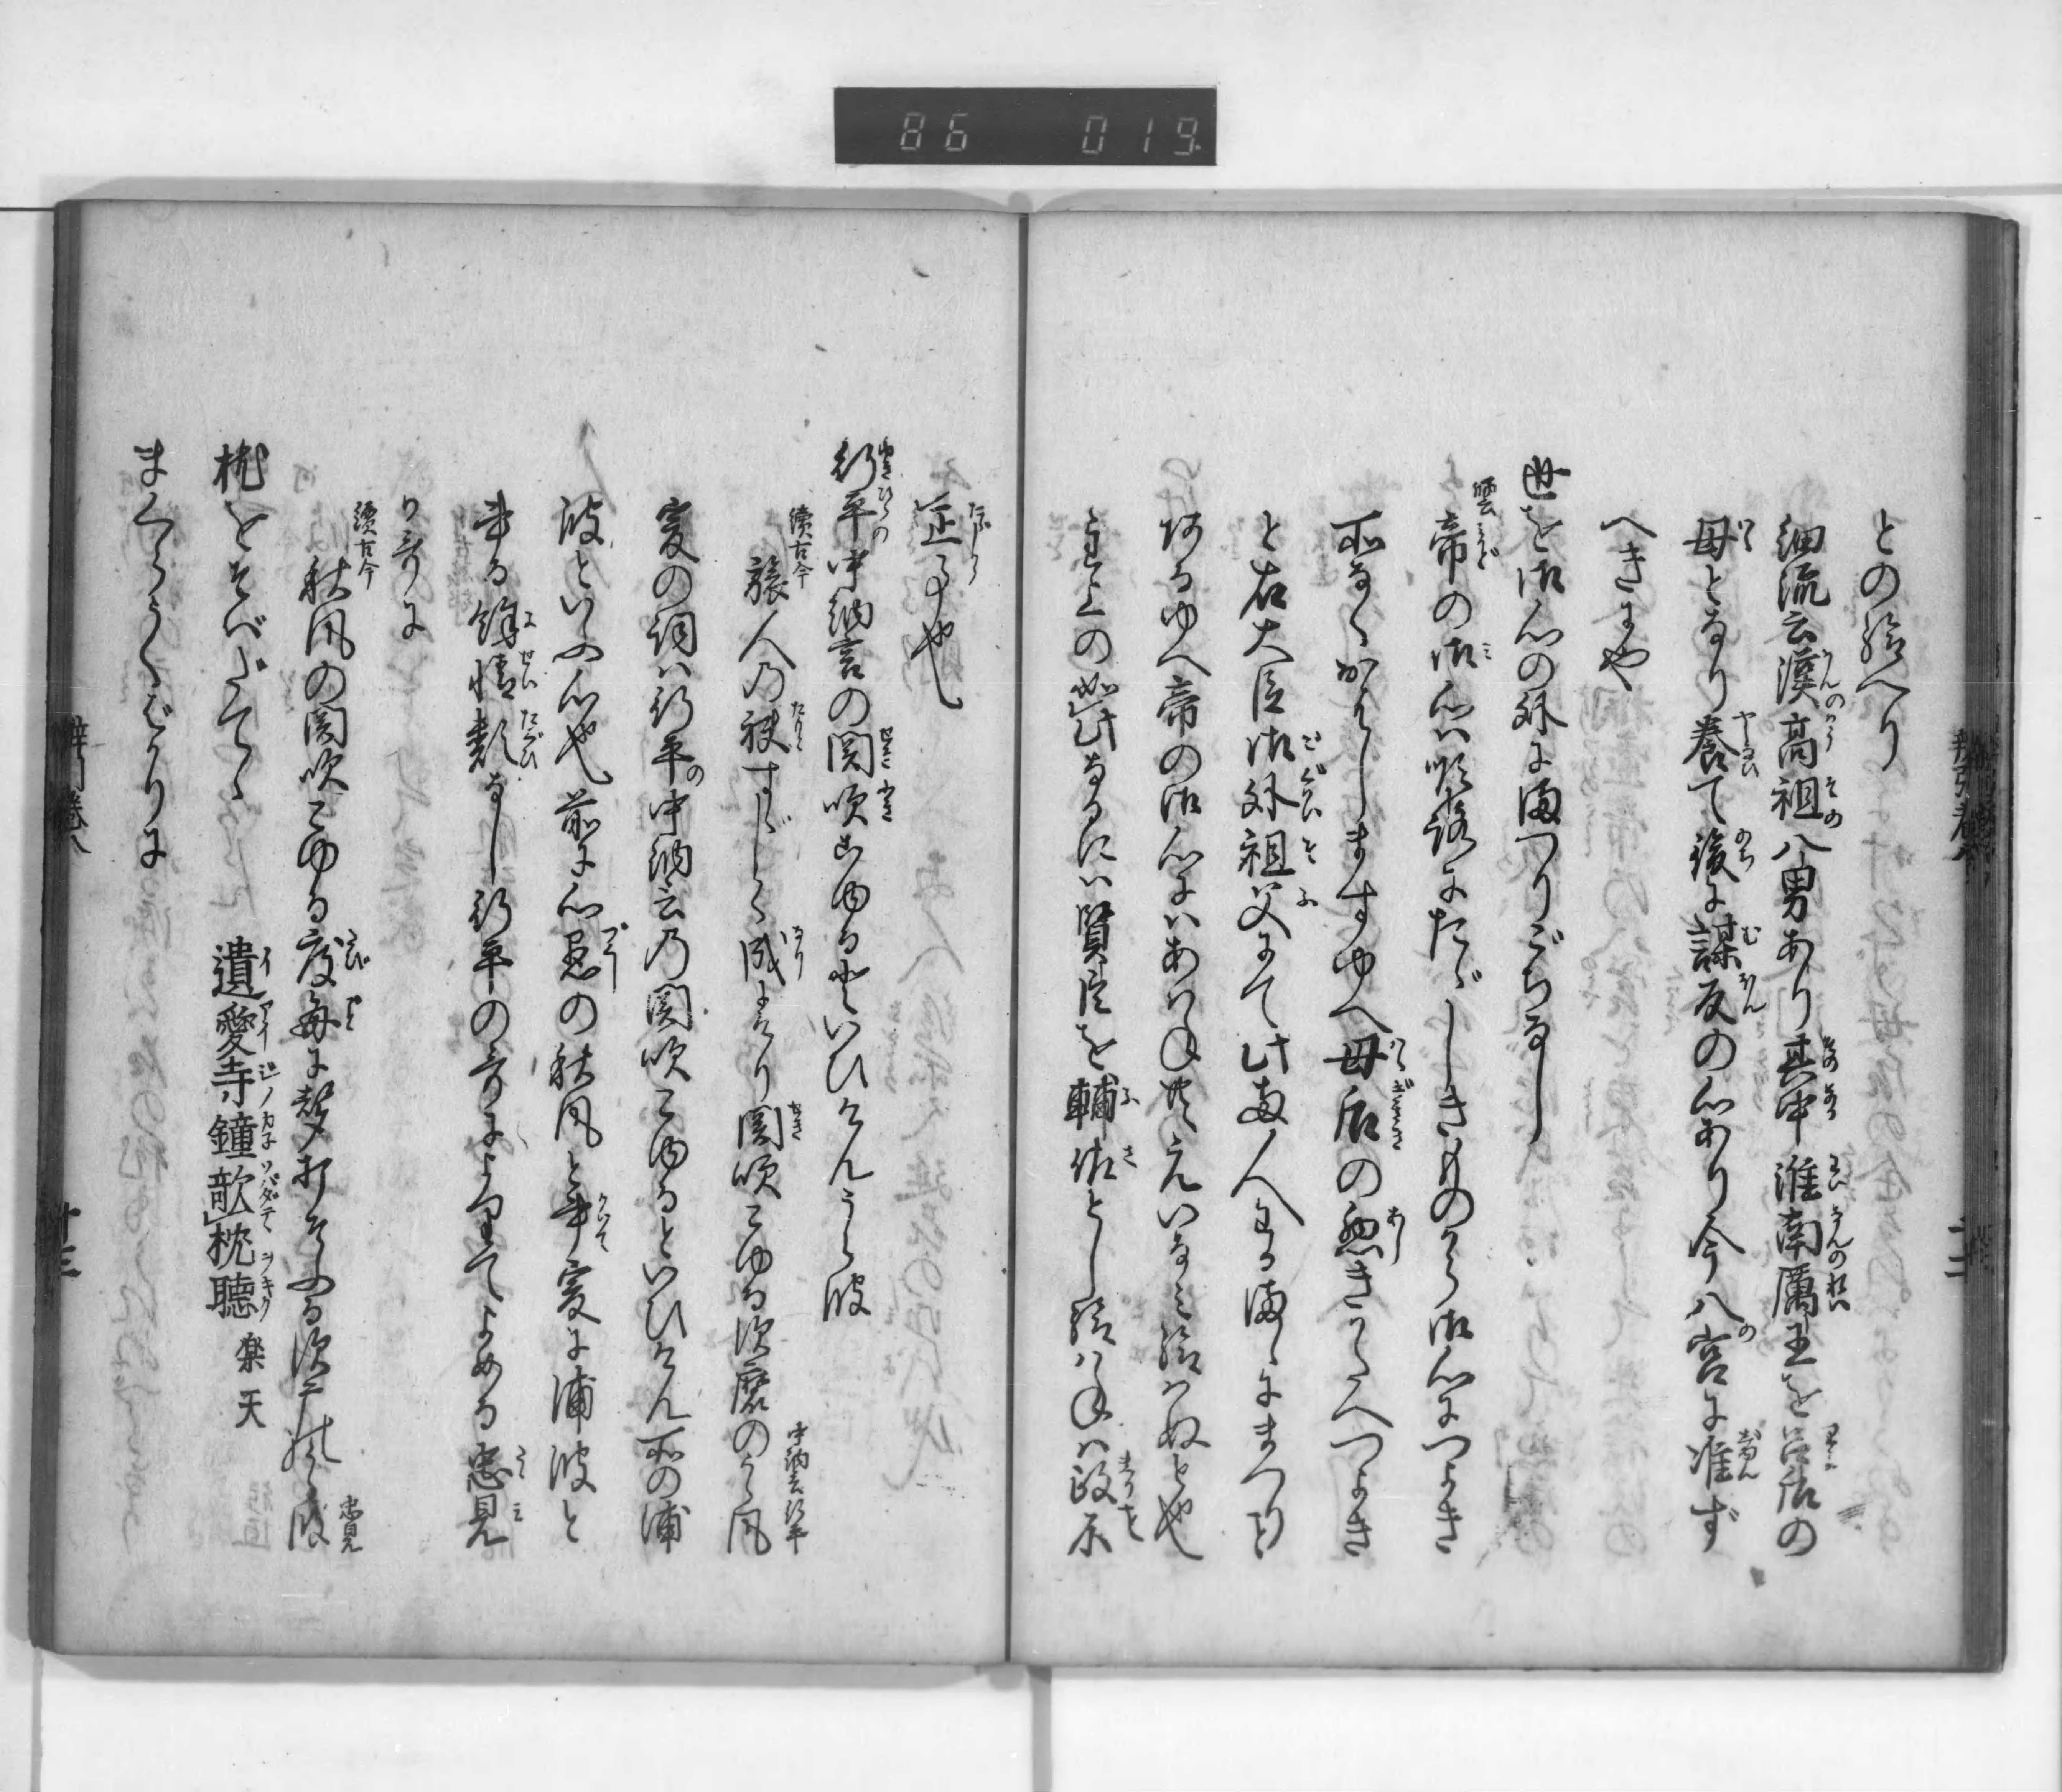 86 019
との給へり
細流云漢高祖八男あり其中淮南厲王を呂后の
母となり養て後に謀反の心あり今八宮に准ず
へきにや
世を御心の外にまつりごちなし
帝の御心は順路にたゞしきものから御心につよき
所なくおはしますゆへ母后の悪きかたへつよき
と右大臣御外祖父にて此両人わかまゝにまつりこ
つゆへ帝の御心にはあはね共えいなみ給はぬと也
主上の如此なるには賢臣を輔佐とし給はねは政不
正事也
行平中納言の関吹こゆるといひけんうら波
續古今
旅人の袂すゞしく成にけり関吹こゆる須磨のうら風
中納言行平
爰の詞は行平の中納言の関吹こゆるといひけん所の浦
波といふ心也前に心盡の秋風と書て爰に浦波と
書る餘情類なし行平の哥によりてよめる忠見
か哥に
續古今
秋風の関吹こゆる度毎に声打そふる須广の浦波
忠見
枕をそばだてゝ
遺愛寺鐘欹枕聽 楽天
まくらうくばかりに
十三